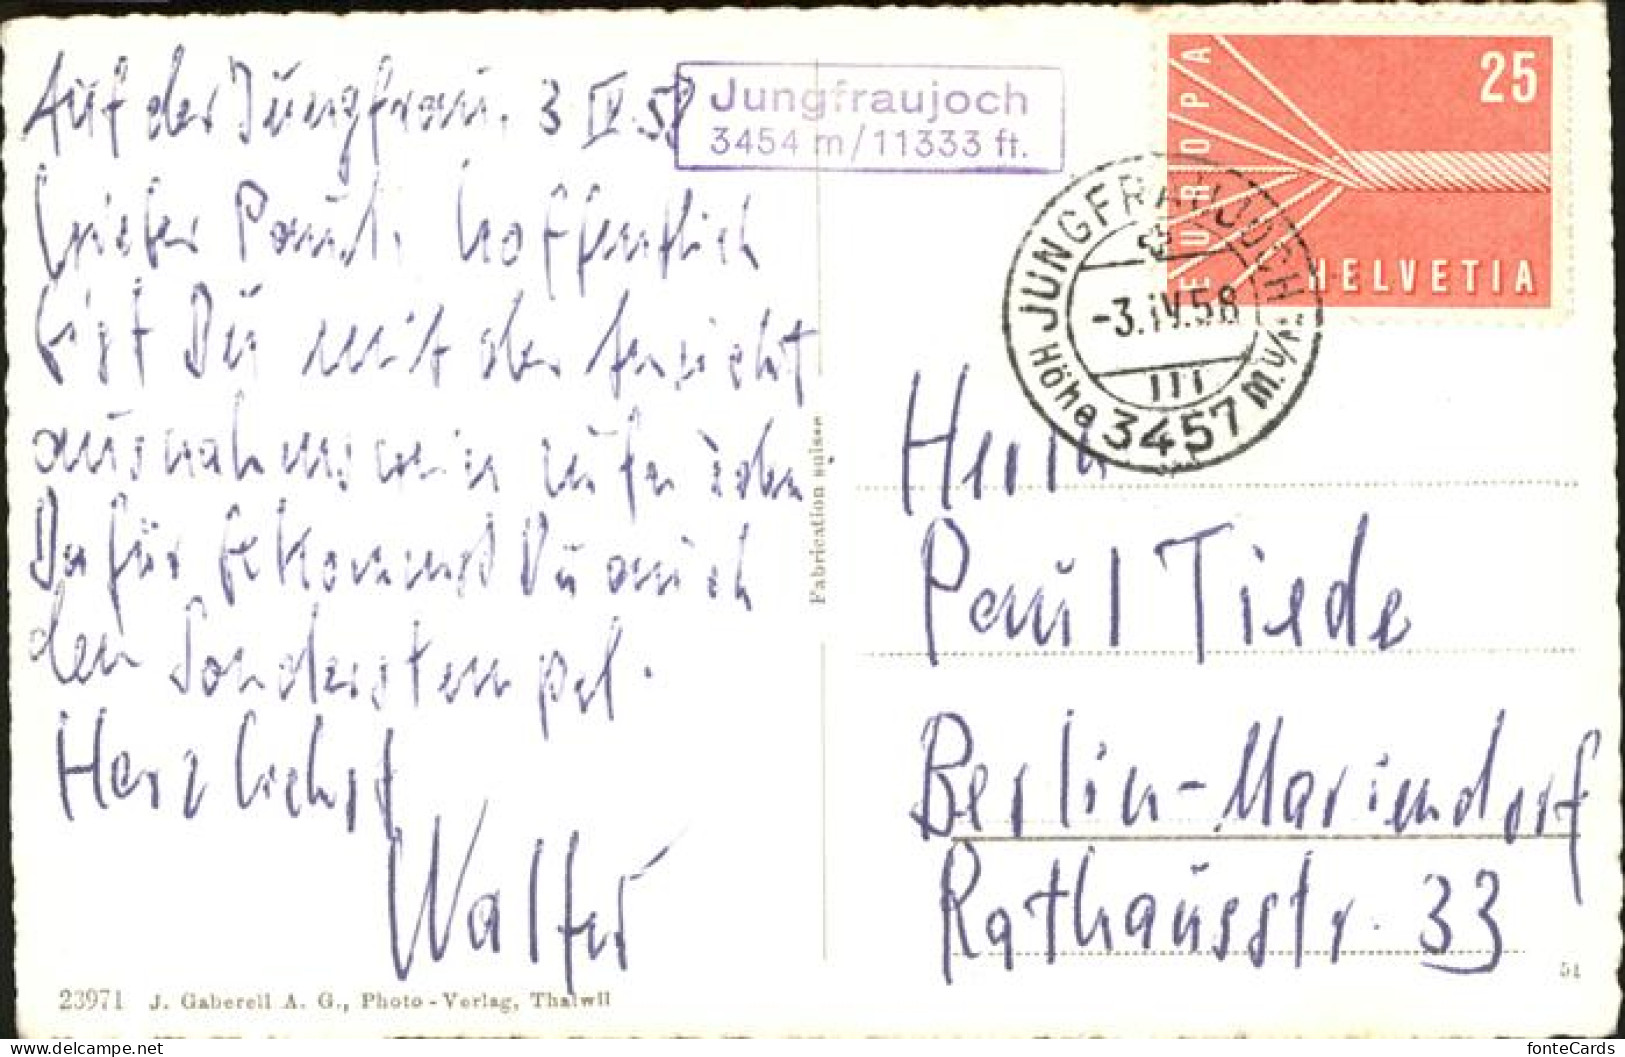 Auf der Jungfrau. 3 IV. 58
Lieber Paul, hoffentlich
bist Du mit der Ansicht
ausnahmsweis zufrieden
Dafür bekommst Du auch
den Sonderstempel.
Herzlichst
Walter
Jungfraujoch
3454 m/11333 ft.
EUROPA
25
HELVETIA
JUNGFRAUJOCH
-3.IV.58
III
Höhe 3457 M.ü/M.
Fabrication suisse
Herrn
Paul Tiede
Berlin-Mariendorf
Rathausstr. 33
23971 J. Gaberell A. G., Photo-Verlag, Thalwil
51
fonteCards